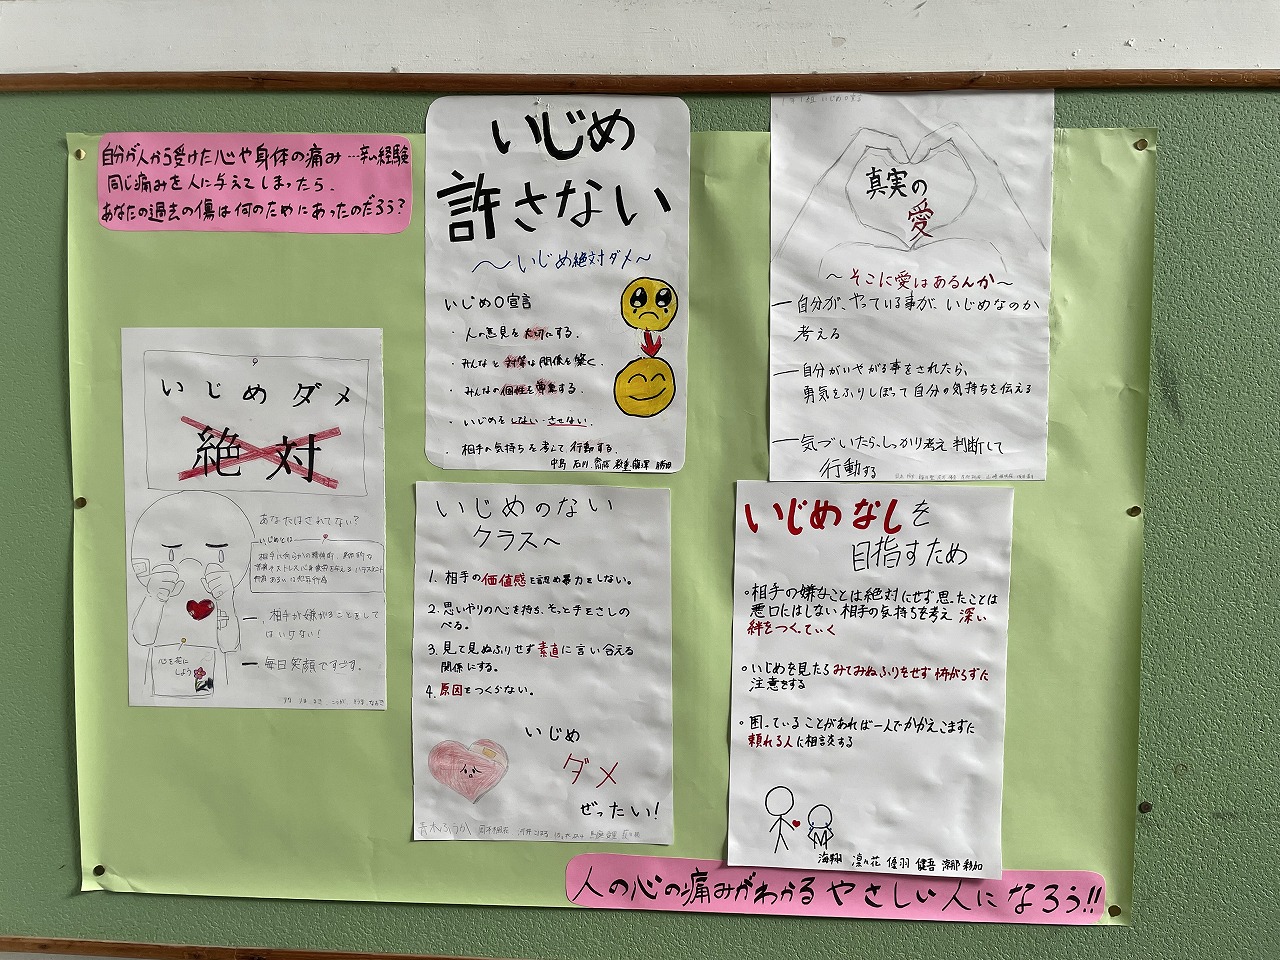 自分が人から受けた心や身体の痛み…辛い経験
同じ痛みを人に与えてしまったら、
あなたの過去の傷は何のためにあったのだろう？
いじめ
許さない
〜いじめ絶対ダメ〜
いじめ0宣言
・人の意見を大切にする。
・みんなと対等な関係を築く。
・みんなの個性を尊重する。
・いじめをしない・させない。
・相手の気持ちを考えて行動する。
中島 石川 藤澤 勝田
1年1組 いじめ0
真実の
愛
〜そこに愛はあるんか〜
―自分が、やっている事が、いじめなのか
考える
―自分がいやがる事をされたら、
勇気をふりしぼって自分の気持ちを伝える
―気づいたら、しっかり考え判断して
行動する
いじめダメ
絶対
あなたはされてない？
いじめとは
相手に何らかの精神的、身体的な
苦痛やストレス
―相手が嫌がることをして
はいけない！
―毎日笑顔ですごす。
心を花に
しよう
いじめのない
クラスへ
1. 相手の価値感を認め暴力をしない。
2. 思いやりの心を持ち、そっと手をさしの
べる。
3. 見て見ぬふりせず素直に言い合える
関係にする。
4. 原因をつくらない。
いじめ
ダメ
ぜったい！
青木ふうか
いじめなしを
目指すため
・相手の嫌なことは絶対にせず思ったことは
悪口にはしない 相手の気持ちを考え 深い
絆をつくっていく
・いじめを見たらみてみぬふりをせず怖がらずに
注意をする
・困っていることがあれば一人でかかえこまずに
頼れる人に相談する
海翔 凛々花 優羽 健吾 彩加
人の心の痛みがわかる やさしい人に なろう!!